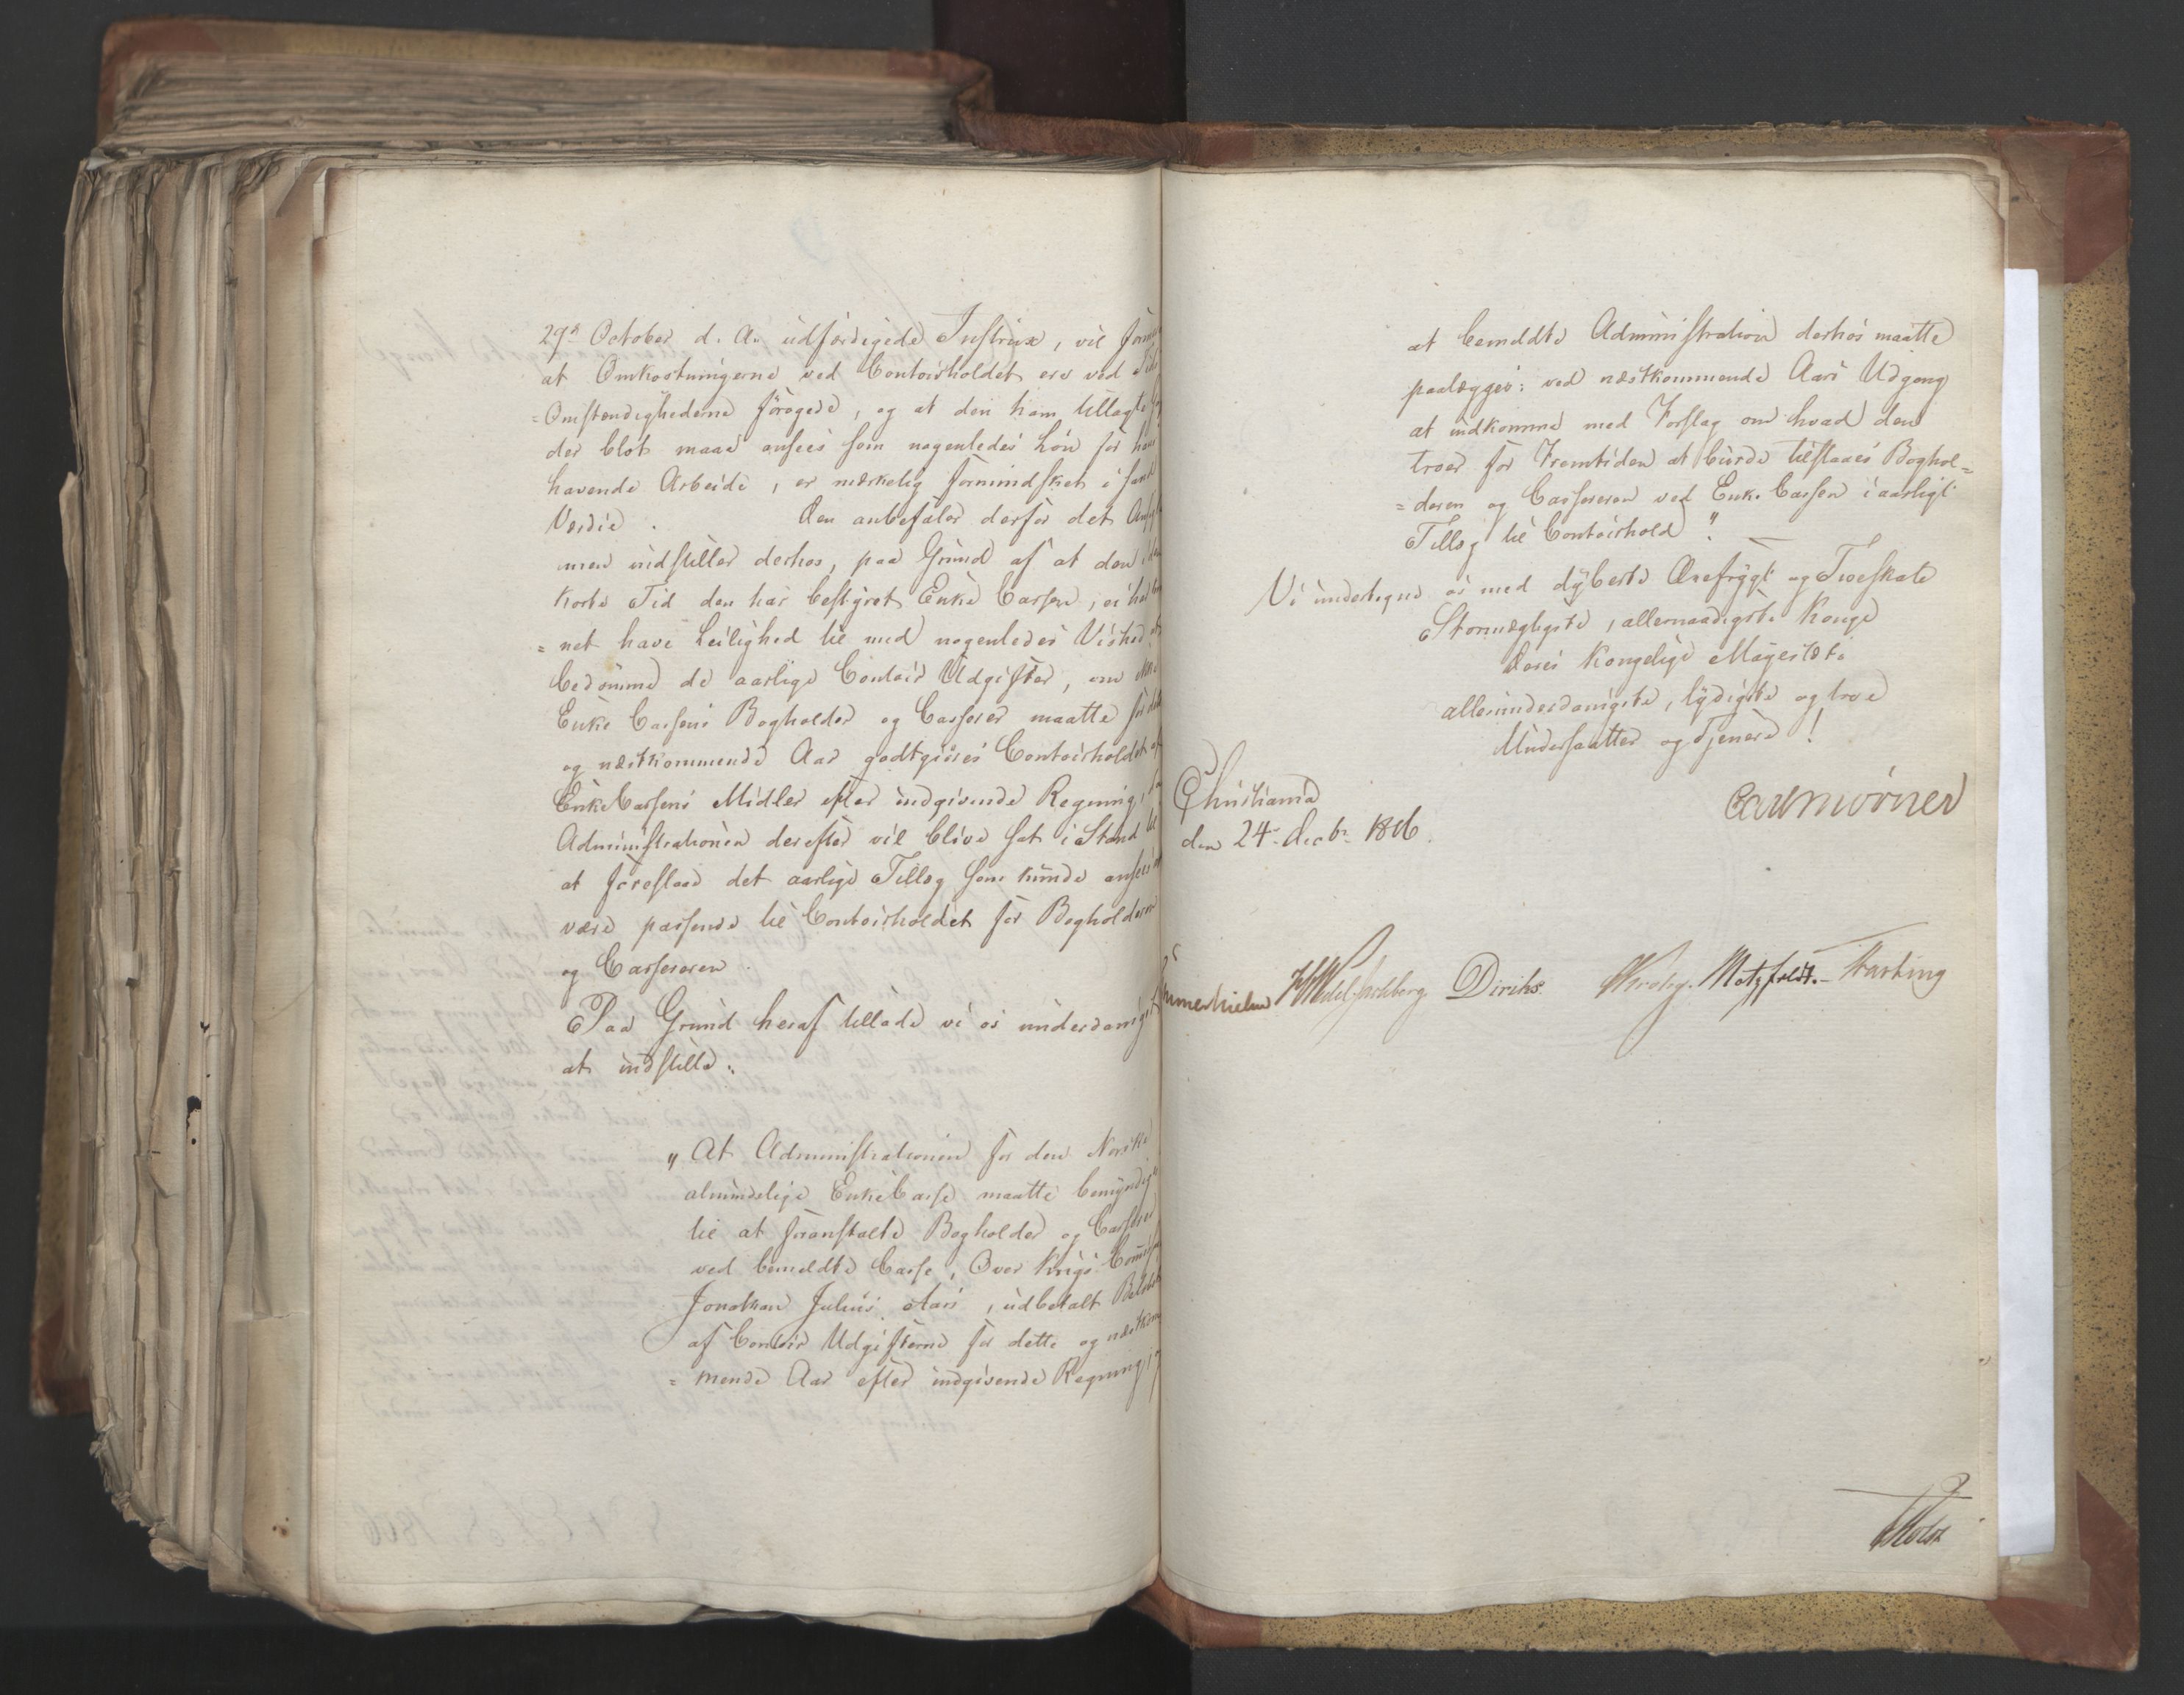 29de October d. A. udfærdigede Instrux, vil
at Omkostningerne ved Contoirholdet ere ved Tids
=Omstændighederne forøgede, og at den ham tillagte
der blot maae ansees som nogenledes Løn for hans
havende Arbeide, er mærkelig formindsket i sand
Værdie. Den anbefaler derfor det
men indstiller derhos, paa Grund af at den i den
korte Tid den har bestyret Enke Cassen, ei har
=net have Leilighed til med nogenledes Vished at
bedømme de aarlige Contoir Udgifter, om
Enke Cassens Bogholder og Casserer maatte for dette
og næstkommende Aar godtgiøres Contoirholdet af
EnkeCassens Midler efter indgivende Regning, da
Administrationen derefter vil blive sat i Stand til
at foreslaae det aarlige Tillæg som kunde ansees
være passende til Contoirholdet for Bogholderen
og Cassereren.
Paa Grund heraf tillade vi os underdanigst
at indstille:
"At Administrationen for den Norske
almindelige EnkeCasse maatte bemyndig
til at foranstalte Bogholder og Casserer
ved bemeldte Casse, Over Krigs
Jonathan Julius Aars, udbetalt Beløbet
af Contoir Udgifterne for dette og næstkom
=mende Aar efter indgivende Regning,
at bemeldte Administration derhos maatte
paalægges: ved næstkommende Aars Udgang
at indkomme med Forslag om hvad den
troer for Fremtiden at burde tilstaaes Boghol=
=deren og Cassereren ved Enke Cassen i aarligt
Tillæg til Contoirhold".
Vi undertegne os med dybeste Ærefrygt og Troeskab
Stormægtigste, allernaadigste Konge
Deres Kongelige Majestæts
allerunderdanigste, lydigste og troe
Undersaatter og Tjenere!
Christiania
den 24. Decbr. 1816.
Carl Mörner
Sommerhielm HWedel-Jarlsberg Diriks. Krohg. Motzfeldt.
Holst